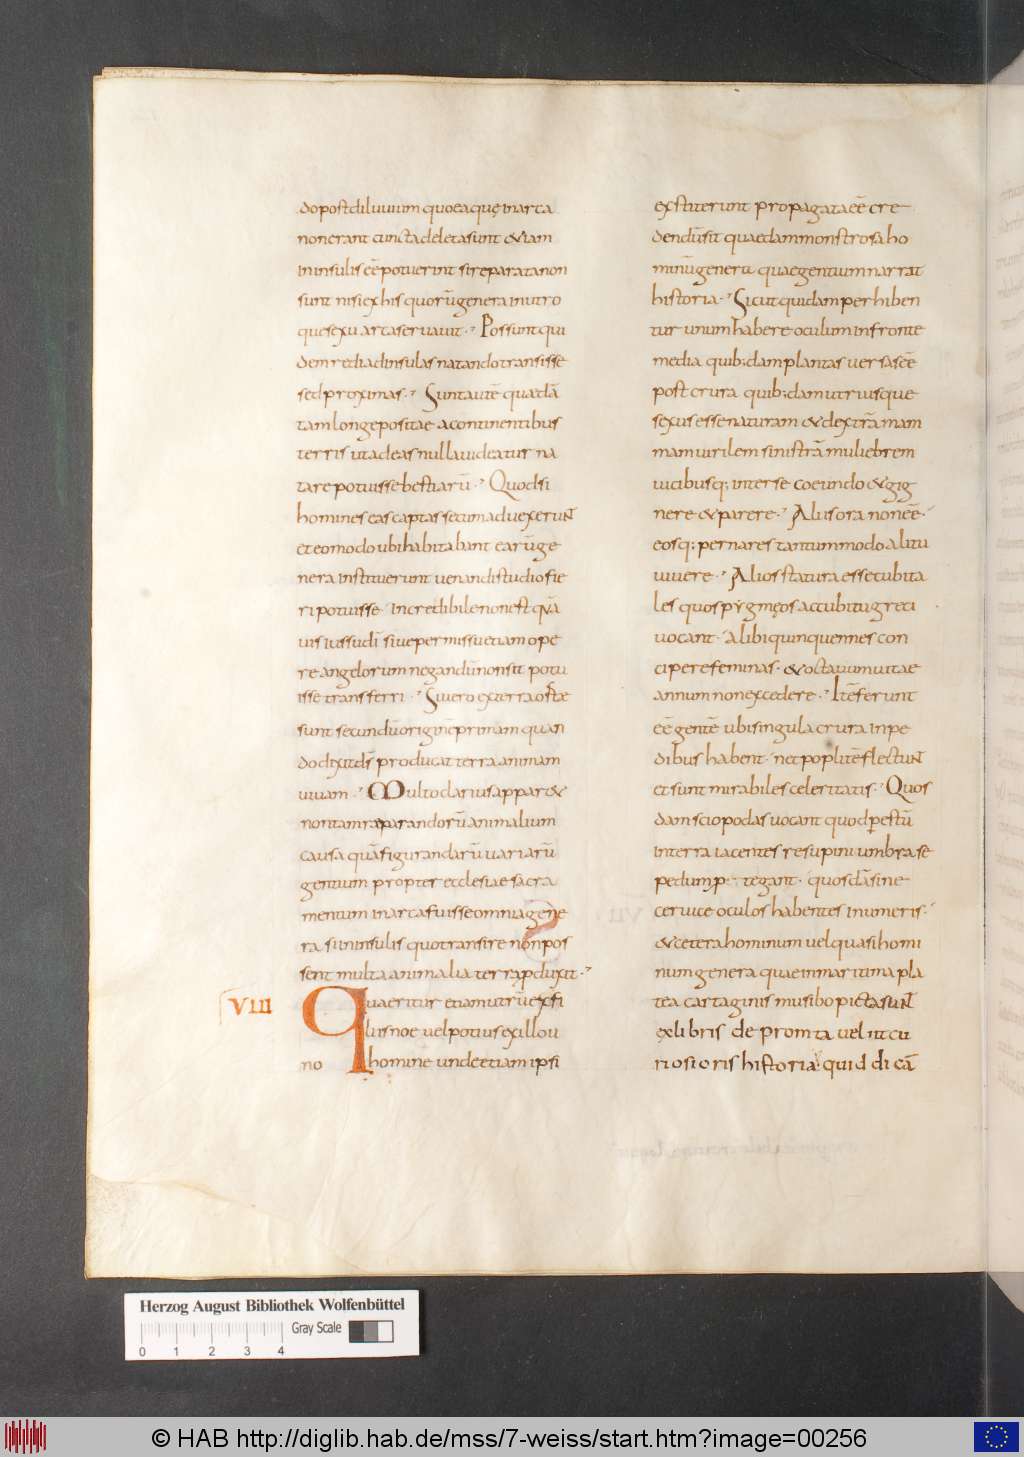 do post diluuium quo ea quę in arca
non erant cuncta deleta sunt & iam
in insulis eē potuerint si reparata non
sunt nisi ex his quorū genera in utro
que sexu arca seruauit. Possunt qui
dem credi ad insulas natando transisse
sed proximas. Sunt autē quædā
tam longe positae a continentibus
terris ut ad eas nulla uideatur na
tare potuisse bestiarū. Quod si
homines eas captas secum aduexerunt
et eo modo ubi habitabant earū ge
nera instituerunt uenandi studio fie
ri potuisse incredibile non est quā
uis iussu dī siue permissu etiam ope
re angelorum negandū non sit potu
isse transferri. Si uero ex terra ortae
sunt secundū originē primam quan
do dixit dš producat terra animam
uiuam. Multo clarius appar&
non tam reparandorū animalium
causa quā figurandarū uariarū
gentium propter ecclesiae sacra
mentum in arca fuisse omnia gene
ra si in insulis quo transire non pos
sent multa animalia terra ꝓduxit.
VIII Quaeritur etiam utrū ex fi
liis noe uel potius ex illo u
no homine unde etiam ipsi
exstiterunt propagata eē cre
dendū sit quaedam monstrosa ho
minū genera quae gentium narrat
historia. Sicut quidam perhiben
tur unum habere oculum in fronte
media quib; dam plantas uersas eē
post crura quib; dam utriusque
sexus esse naturam & dextrā mam
mam uirilem sinistrā muliebrem
uicibusq; inter se coeundo & gig
nere & parere. Aliis ora non eē.
eosq; per nares tantummodo alitu
uiuere. Alios statura esse cubita
les quos pygmęos a cubitu greci
uocant. alibi quinquennes con
cipere feminas. & octauum uitae
annum non excedere. Itē ferunt
eē gentē ubi singula crura in pe
dibus habent. nec poplitē flectunt
et sunt mirabiles celeritatis. Quos
dam sciopodas uocant quod ꝑ estū
in terra iacentes resupini umbra se
pedum ꝓtegant. quosdā sine
ceruice oculos habentes in umeris.
& cetera hominum uel quasi homi
num genera quae in maritima pla
tea cartaginis musibo picta sunt
ex libris depromta uel ut cu
riosioris historia. quid dicā
Herzog August Bibliothek Wolfenbüttel
Gray Scale
0 1 2 3 4
© HAB http://diglib.hab.de/mss/7-weiss/start.htm?image=00256